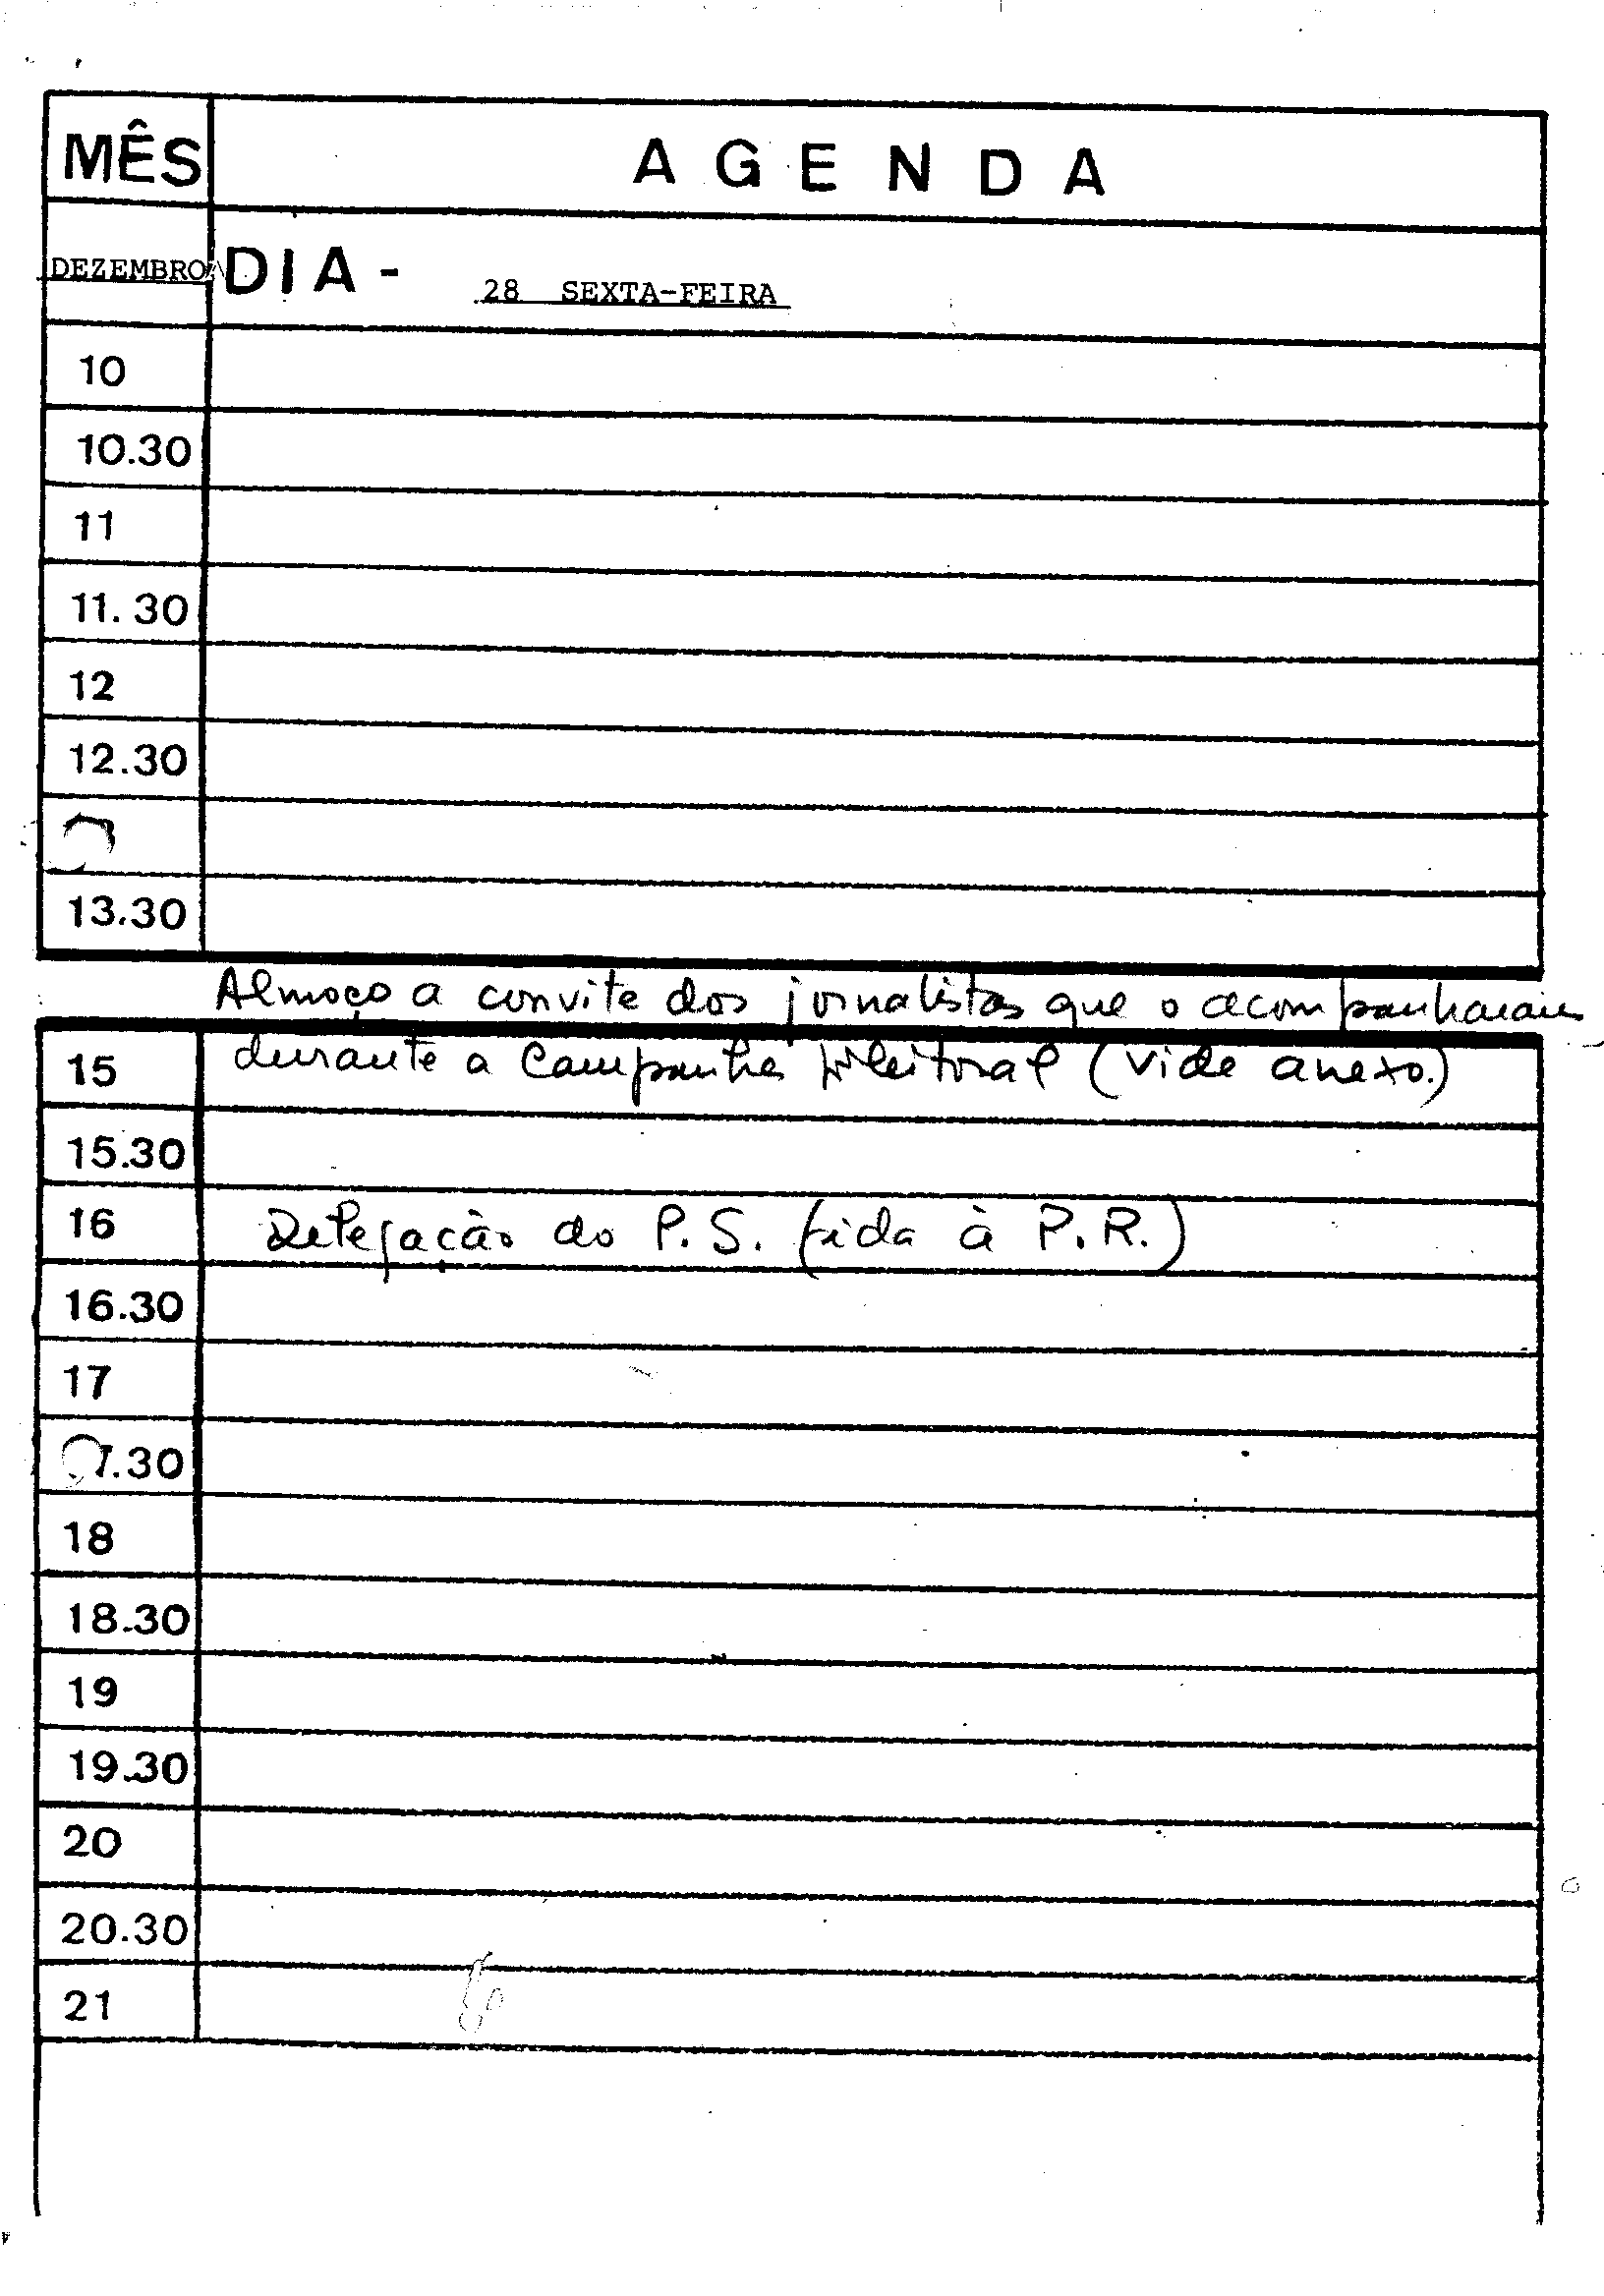 MÊS AGENDA
DEZEMBRO DIA - 28 SEXTA-FEIRA
10
10.30
11
11.30
12
12.30
13.30
Almoço a convite dos jornalistas que o acompanharam
15 durante a Campanha Eleitoral (vide anexo.)
15.30
16 Delegação do P.S. (ida à P.R.)
16.30
17
7.30
18
18.30
19
19.30
20
20.30
21